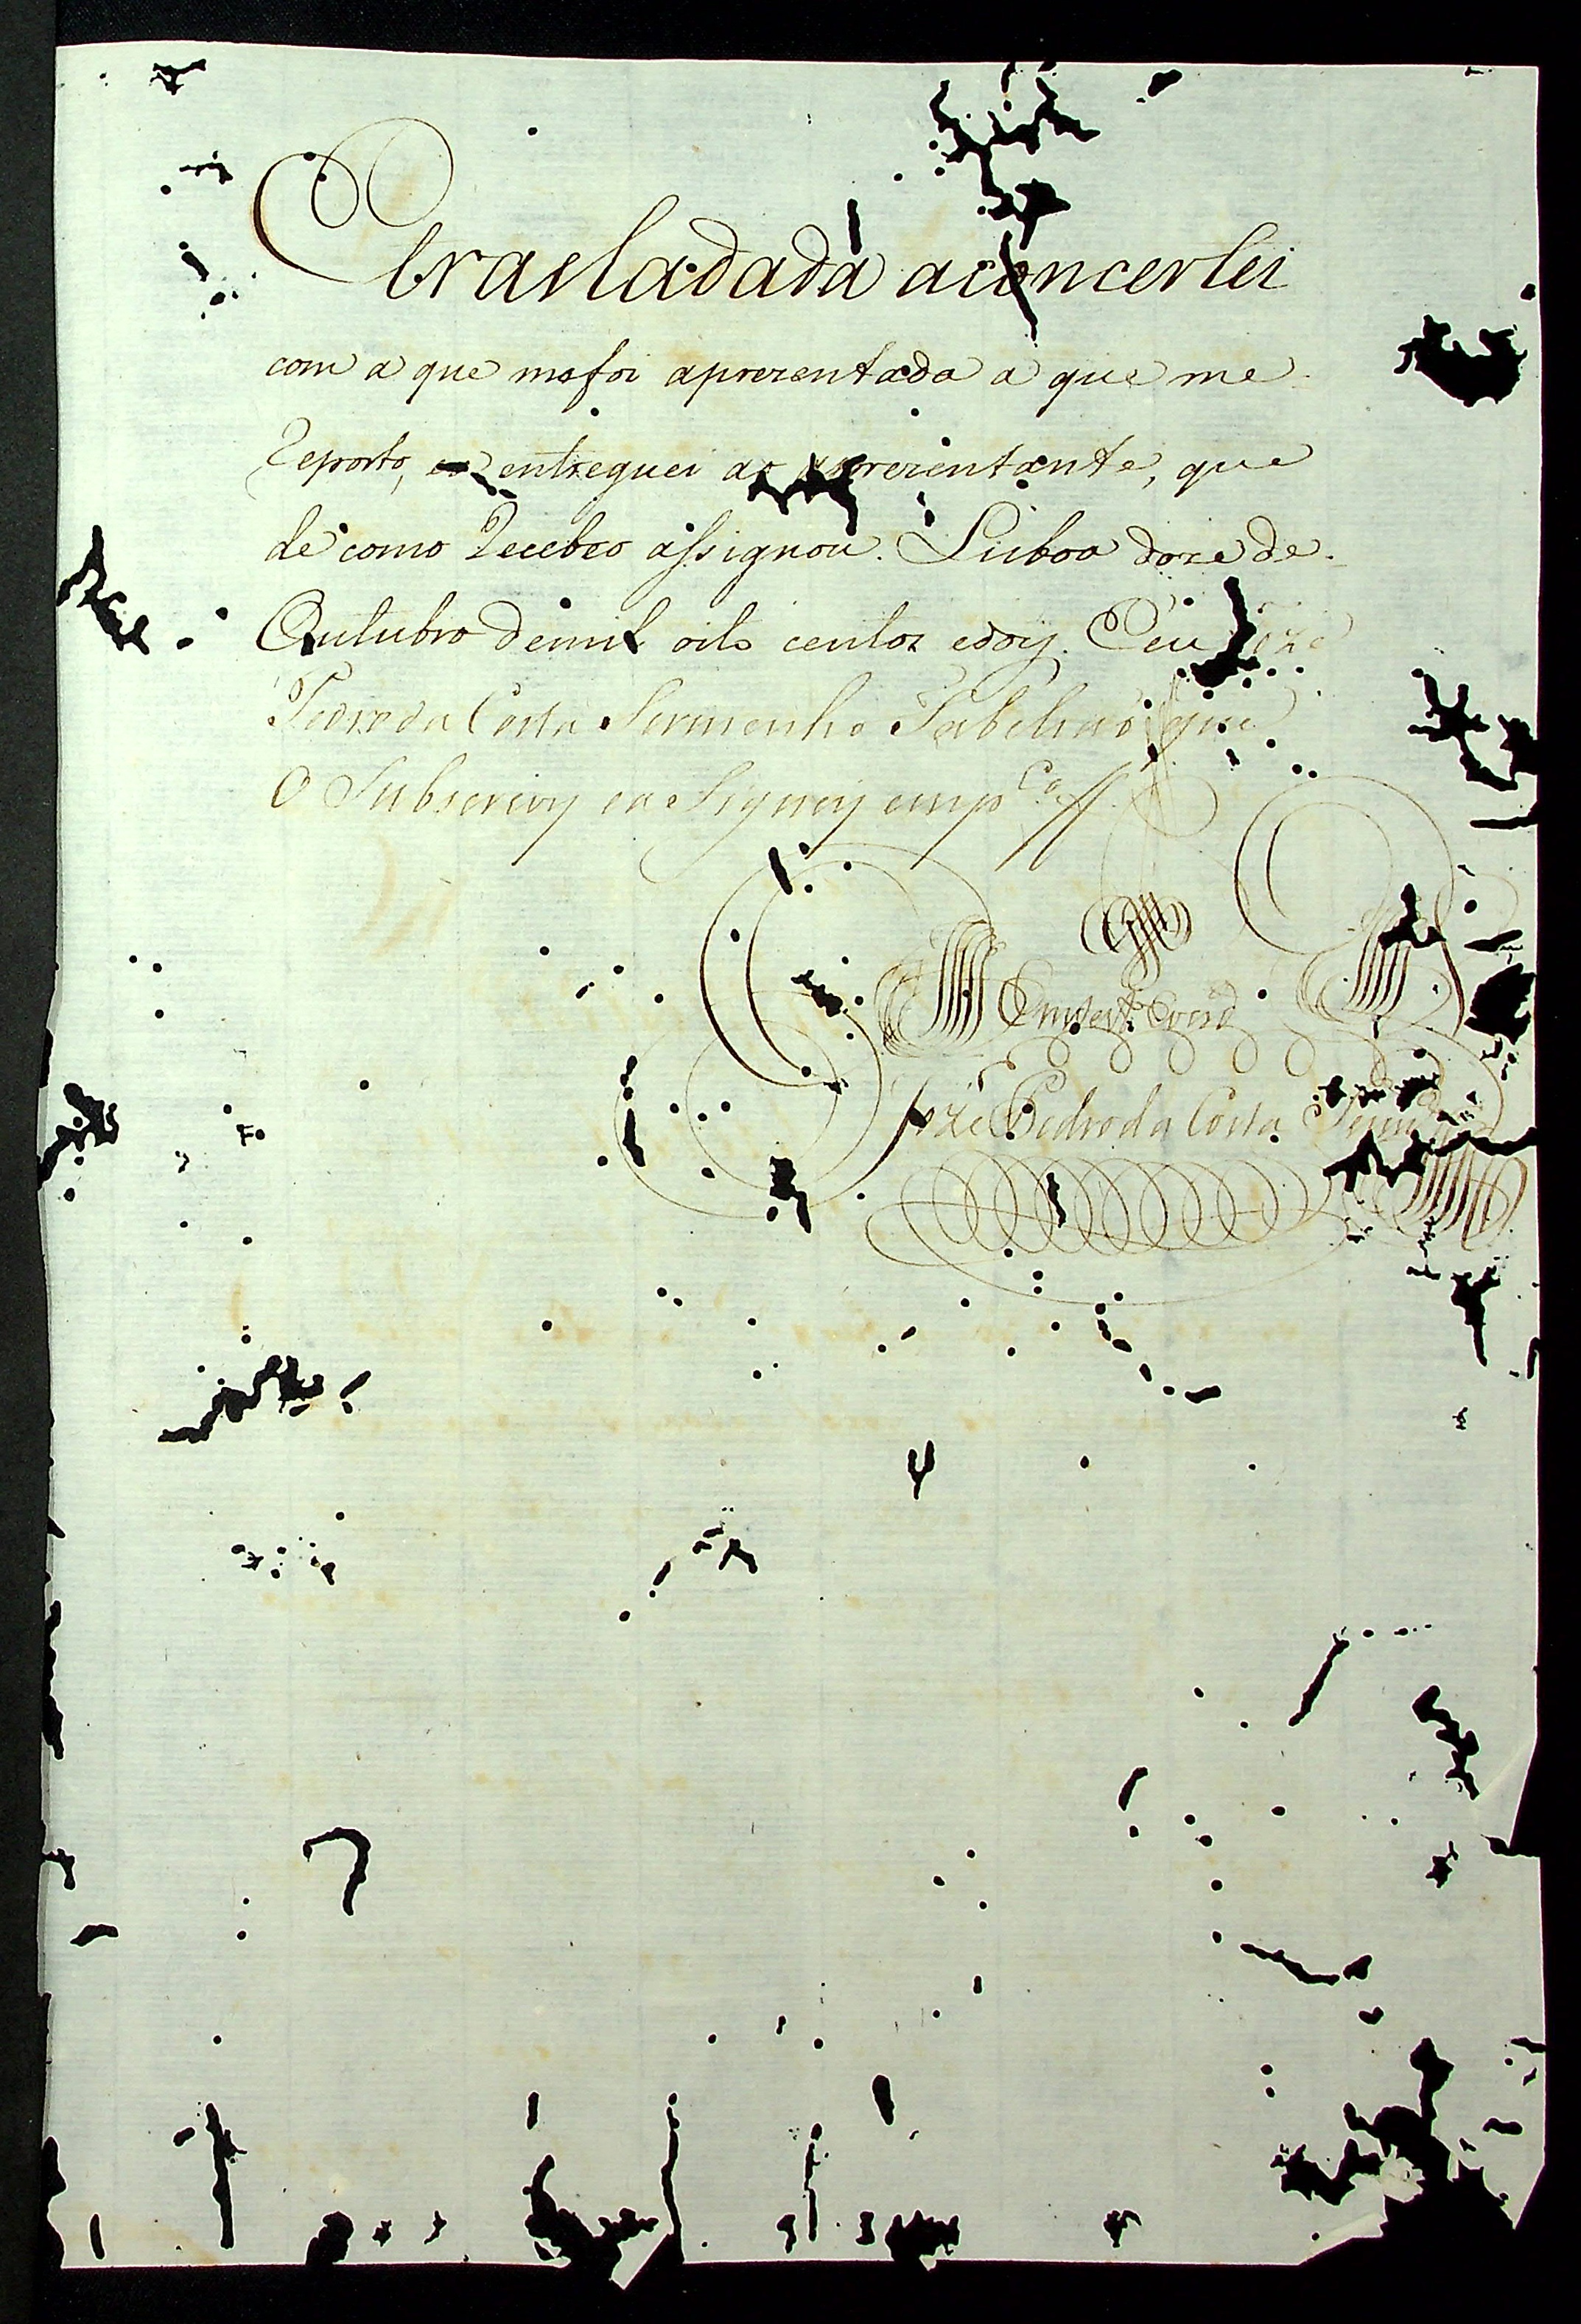 E trasladada a concertei
com a que mefoi aprezentada a que me
Reporto, entreguei ao aprezentante, que
de como Recebeo assignou. Lisboa doze de
Outubro demil oito centos edois. E eu Joze
Pedro da Costa Sermenho Tabeliaõ que
O Subscrevy ea Signey emp.co
Em test.o
Joze Pedro da Costa